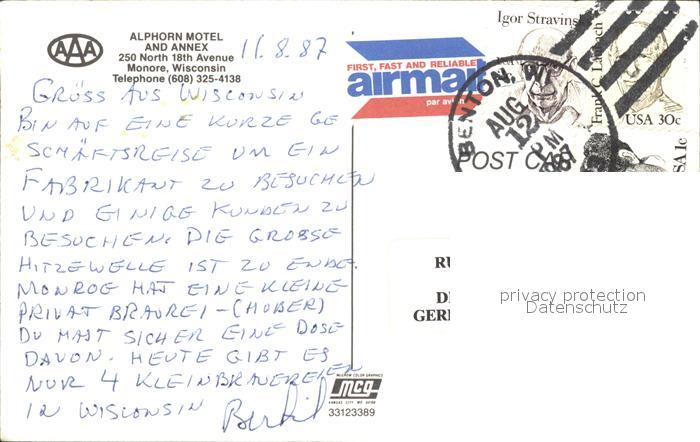 AAA
ALPHORN MOTEL
AND ANNEX
250 North 18th Avenue
Monore, Wisconsin
Telephone (608) 325-4138
11.8.87
GRÜSS AUS WISCONSIN
BIN AUF EINE KURZE GE
SCHÄFTSREISE UM EIN
FABRIKANT ZU BESUCHEN
UND EINIGE KUNDEN ZU
BESUCHEN. DIE GROSSE
HITZEWELLE IST ZU ENDE.
MONROE HAT EINE KLEINE
PRIVAT BRAUREI - (HUBER)
DU HAST SICHER EINE DOSE
DAVON. HEUTE GIBT ES
NUR 4 KLEINBRAUEREIEN
IN WISCONSIN
FIRST, FAST AND RELIABLE
airmail
par avion
Igor Stravins
USA 30c
BENTON, WI
AUG
12
PM
1987
POST C
SA 1c
RU
D
GER
privacy protection
Datenschutz
McGREW COLOR GRAPHICS
mcg
KANSAS CITY, MO 64108
33123389